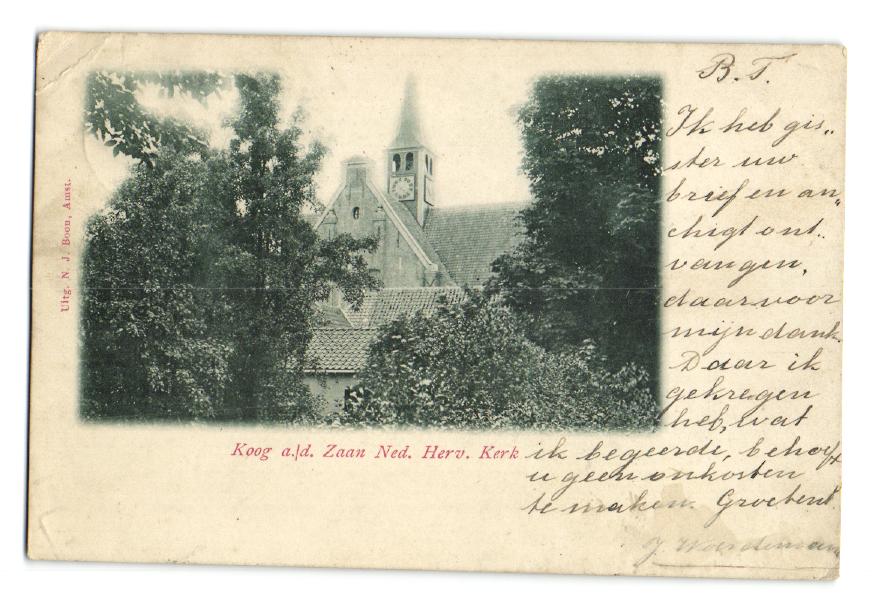 B. T.
Ik heb gis„
ster uw
brief en an„
chigt ont„
vangen,
daarvoor
mijn dank.
Daar ik
gekregen
heb, wat
ik begeerde, behoeft
u geen onkosten
te maken. Groetend
J.
Uitg. N. J. Boon, Amst.
Koog a./d. Zaan Ned. Herv. Kerk